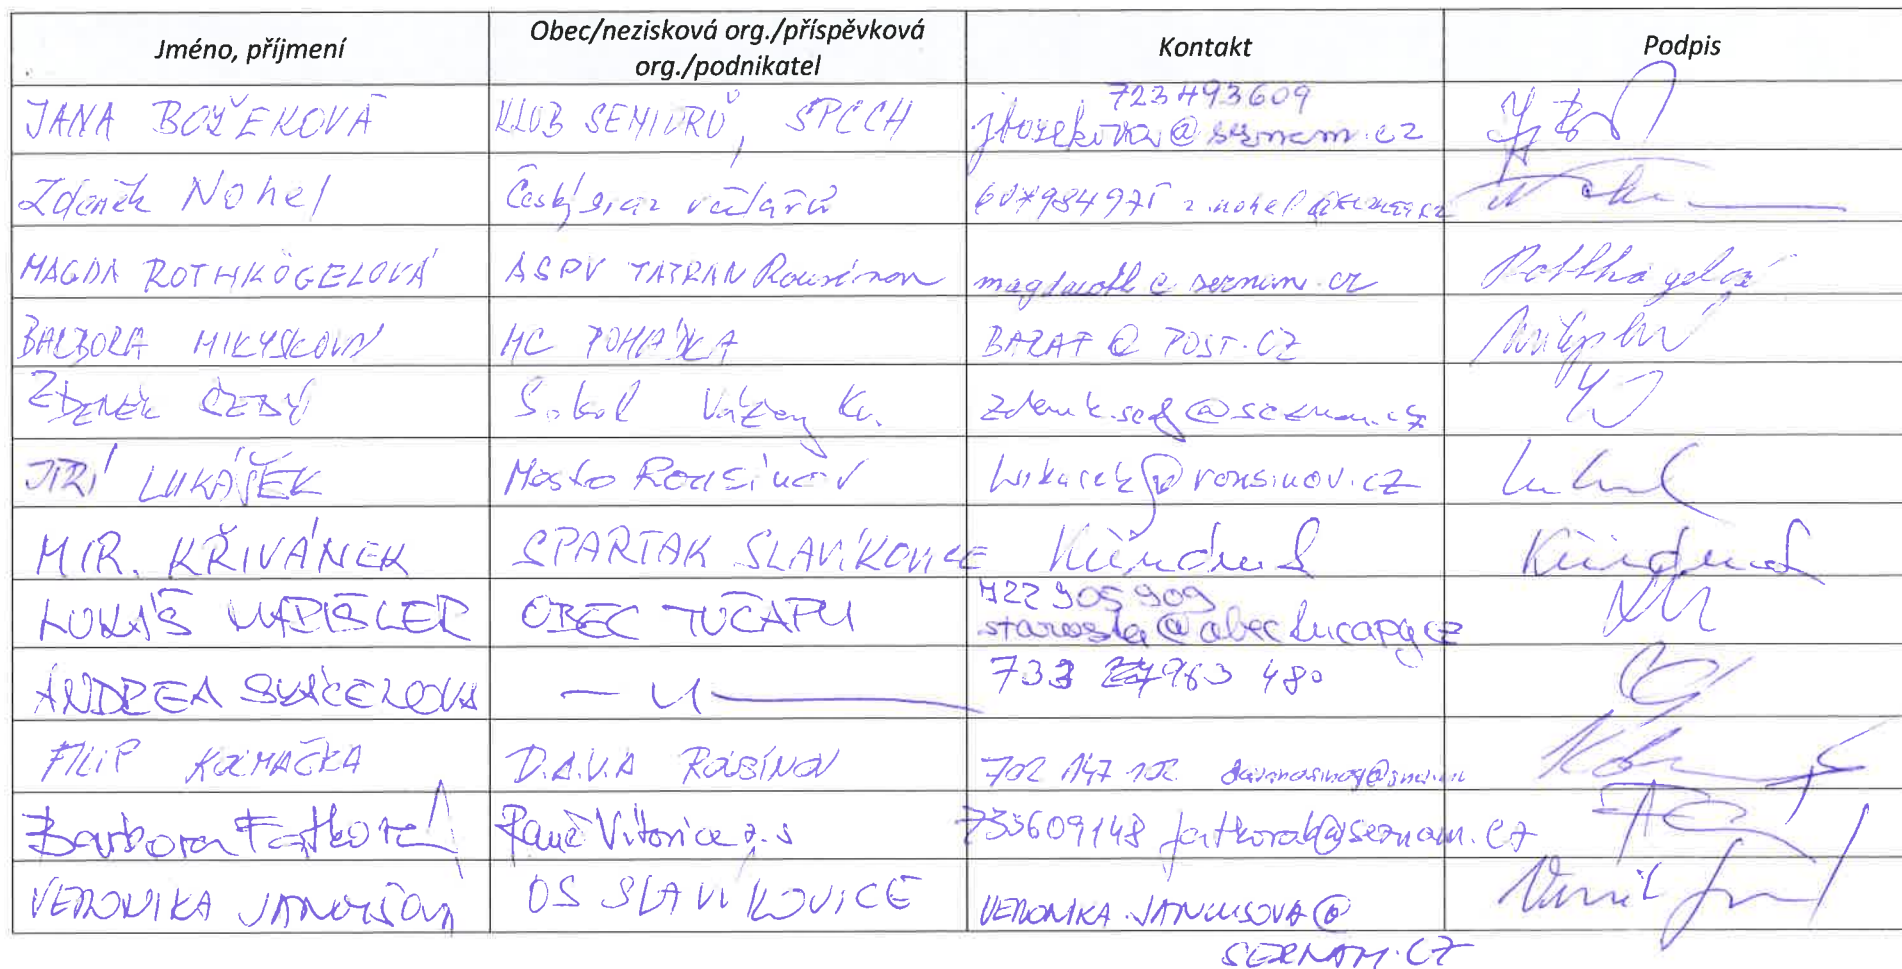 Jméno, příjmení
Obec/nezisková org./příspěvková
org./podnikatel
Kontakt
Podpis
JANA BOŽEKOVÁ KLUB SENIORŮ, SPCCH 723493609
jbozekova@seznam.cz
Zdeněk Nohel Český svaz včelařů 607984975 z.nohel@seznam.cz
MAGDA ROTHKÖGELOVÁ ASPV TATRAN Rousínov magdaroth@seznam.cz Rothkögelová
BARBORA MIKYSKOVÁ MC POHÁDKA BARAF@POST.CZ
ZDENEK ŠEDÝ Sokol Vážany
JIŘÍ LUKÁŠEK Město Rousínov lukasek@rousinov.cz
MIR. KŘIVÁNEK SPARTAK SLAVÍKOVICE Křivánek Křivánek
LUKÁŠ OBEC TUČAPY 722 905 909
starosta@obectucapy.cz
ANDREA — 〃 — 733 963 480
FILIP D.A.V.A ROUSÍNOV 702 147 102
Barbora Fojtková Vítovice z.s 733609148 fojtkovab@seznam.cz
VERONIKA JANOUŠOVÁ OS SLAVÍKOVICE VERONIKA.JANOUSOVA@
SEZNAM.CZ